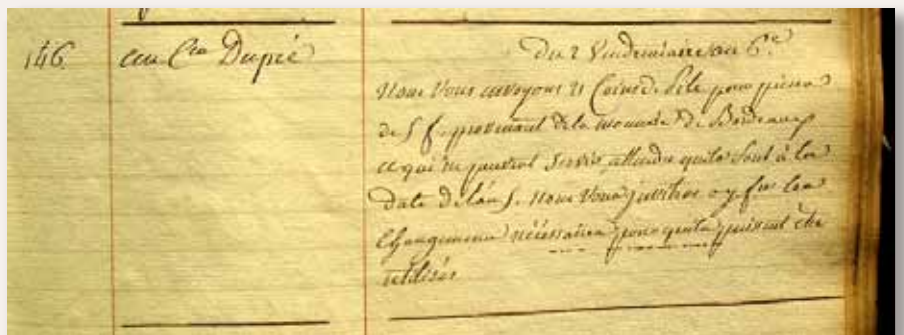 146. au C.en Dupré
Du 2 Vendemiaire an 6.e
Nous Vous envoyons 21 Coins de Pile pour pièces
de 5 f. provenant de la monnaie de Bordeaux
et qui ne peuvent Servir attendu qu'ils Sont à la
Date de l'an 5. Nous Vous invitons a y fre les
Changemens nécessaires pour qu'ils puissent être
utilisés